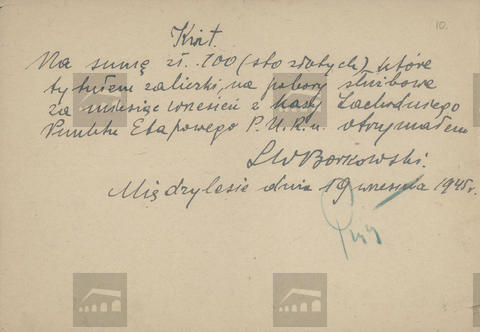 10.
Kwit.
Na sumę zł. 100 (sto złotych), które
tytułem zaliczki, na pobory służbowe
za miesiąc wrzesień z kasy Zachodniego
Punktu Etapowego P.U.R.u. otrzymałem
Borkowski.
Międzylesie dnia 19 września 1945 r.